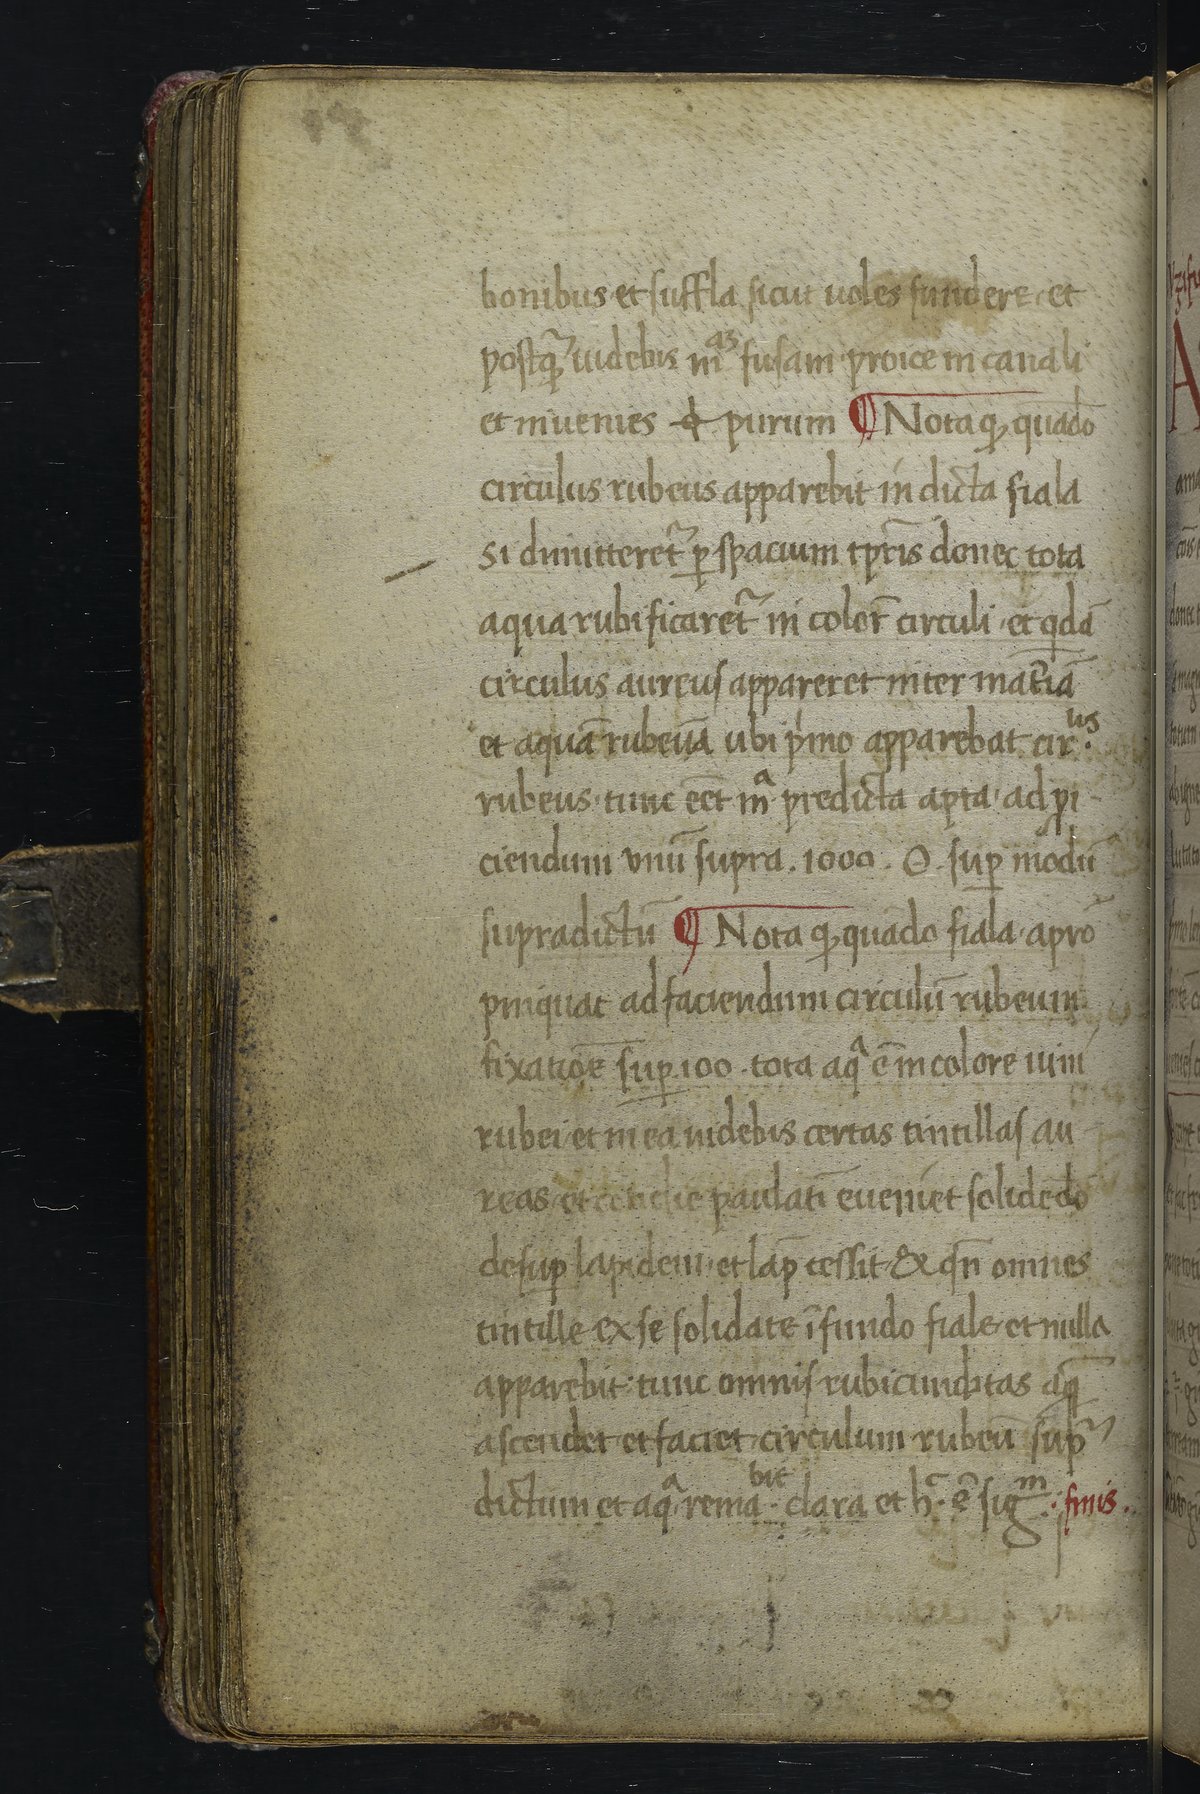 bonibus et suffla sicut uoles fundere et
postq̃ uidebis mᵃ³ fusam proice in canali
et inuenies purum ¶ Nota ꝙ quãdo
circulus rubeus apparebit in dicta fiala
si dimitteret᷑ ꝑ spacium tp̃ris donec tota
aqua rubificaret᷑ in colorẽ circuli et qdã
circulus aureus appareret inter matiã
et aquã rubeuã ubi pͥmo apparebat cir.ᵘˢ
rubeus tunc eẽt mᵃ predicta apta ad ꝓi
ciendum vnũ supra . 1000 . O . suꝑ modũ
supradictũ ¶ Nota ꝙ quãdo fiala apro
pinquat ad faciendum circulũ rubeum
fixatiõe suꝑ 100 . tota aqᵃ ẽ in colore uini
rubei et in ea uidebis certas tintillas au
reas et cotidie paulatĩ eueniet solidedo
desuꝑ lapidem et lap̃ cessit & qñ omnes
tintille ex se solidate ĩ fundo fiale et nulla
apparebit tunc omnis rubicunditas aq̃
ascendet et faciet circulum rubeũ supᵃ
dictum et aqᵃ remaᵇⁱᵗ . clara et hͨ . ẽ sigᵐ . finis .